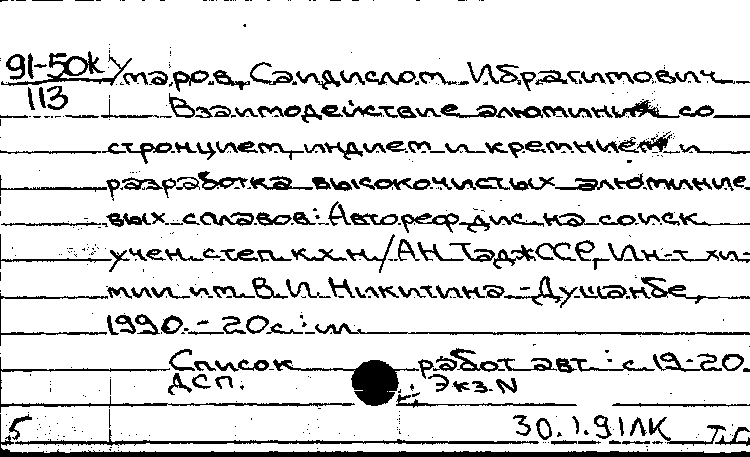 91-50К Умаров, Саидислом Ибрагимович
113
Взаимодействие алюминия со
стронцием, индием и кремнием и
разработка высокочистых алюминие-
вых сплавов: Автореф. дис. на соиск.
учен. степ. к.х.н./АН ТаджССР, Ин-т хи-
мии им. В.И. Никитина.-Душанбе,
1990.-20с.:ил.
Список работ авт.: с.19-20.
ДСП. Экз.N
5 30.1.91ЛК